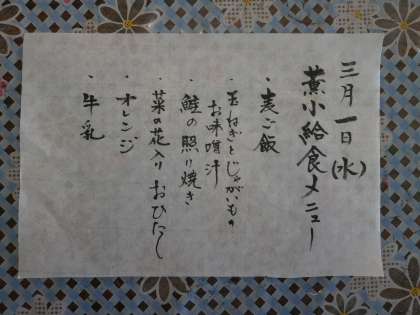 三月一日(水)
薫小給食メニュー
・麦ご飯
・玉ねぎとじゃがいもの
お味噌汁
・鮭の照り焼き
・菜の花入りおひたし
・オレンジ
・牛乳